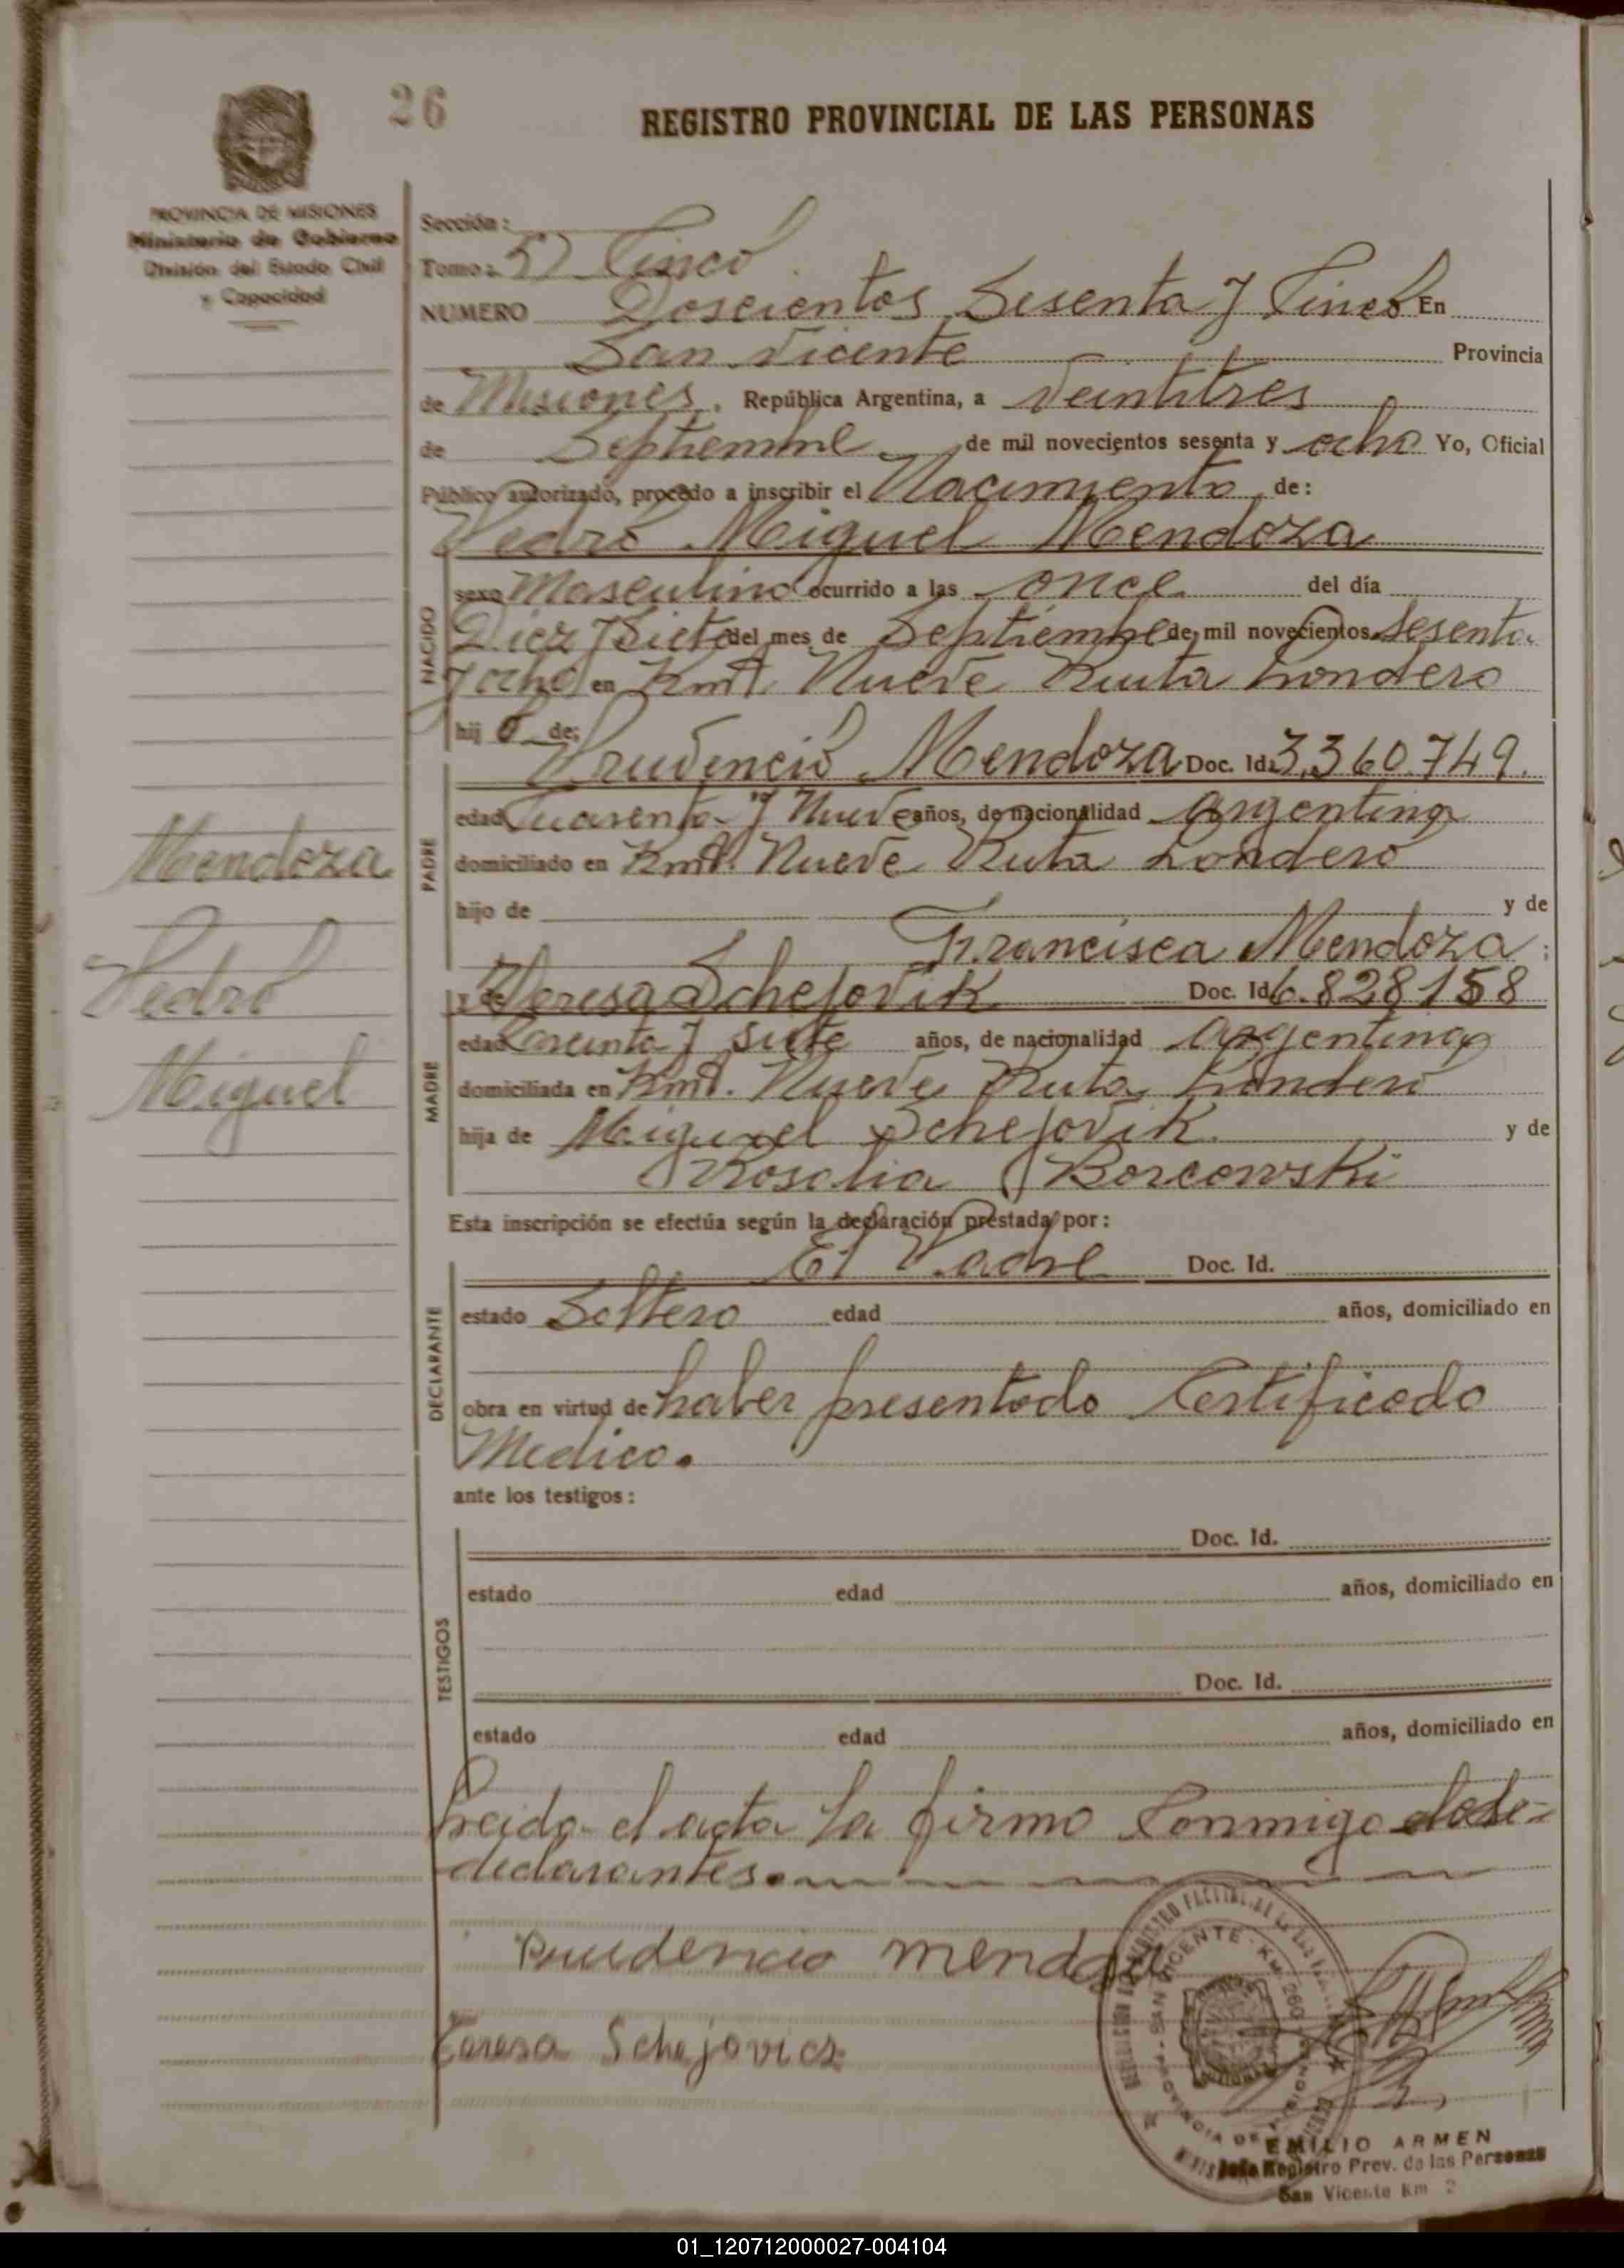 26
REGISTRO PROVINCIAL DE LAS PERSONAS
PROVINCIA DE MISIONES
Ministerio de Gobierno
División del Estado Civil
y Capacidad
Sección:
Tomo: 5) Cinco
NUMERO Doscientos Sesenta y Cinco En
San Vicente Provincia
de Misiones, República Argentina, a Veintitres
de Septiembre de mil novecientos sesenta y ocho Yo, Oficial
Público autorizado, procedo a inscribir el Nacimiento de:
Pedro Miguel Mendoza
NACIDO
sexo Masculino ocurrido a las once del día
Diez y Siete del mes de Septiembre de mil novecientos Sesenta
y ocho en Kmt. Nueve Ruta Londero
hijo de:
PADRE
Prudencio Mendoza Doc. Id. 3.360.749.
edad Cuarenta y Nueve años, de nacionalidad argentina
domiciliado en Kmt. Nueve Ruta Londero
hijo de y de
Francisca Mendoza;
MADRE
y de Teresa Schejovik Doc. Id. 6.828158
edad y siete años, de nacionalidad argentina
domiciliada en Kmt. Nueve Ruta Londero
hija de Miguel Schejovik y de
Rosalia Borcowski
Mendoza
Pedro
Miguel
Esta inscripción se efectúa según la declaración prestada por:
DECLARANTE
El Padre Doc. Id.
estado Soltero edad años, domiciliado en
obra en virtud de haber presentado Certificado
Medico.
ante los testigos:
TESTIGOS
Doc. Id.
estado edad años, domiciliado en
Doc. Id.
estado edad años, domiciliado en
Leida el acta la firmo Conmigo
declarantes.
Prudencio mendoza
Teresa Schejovicz
SAN VICENTE - KM. 260
PROVINCIA DE MISIONES
EMILIO ARMEN
Jefe Registro Prov. de las Personas
San Vicente Km 2
01_120712000027-004104